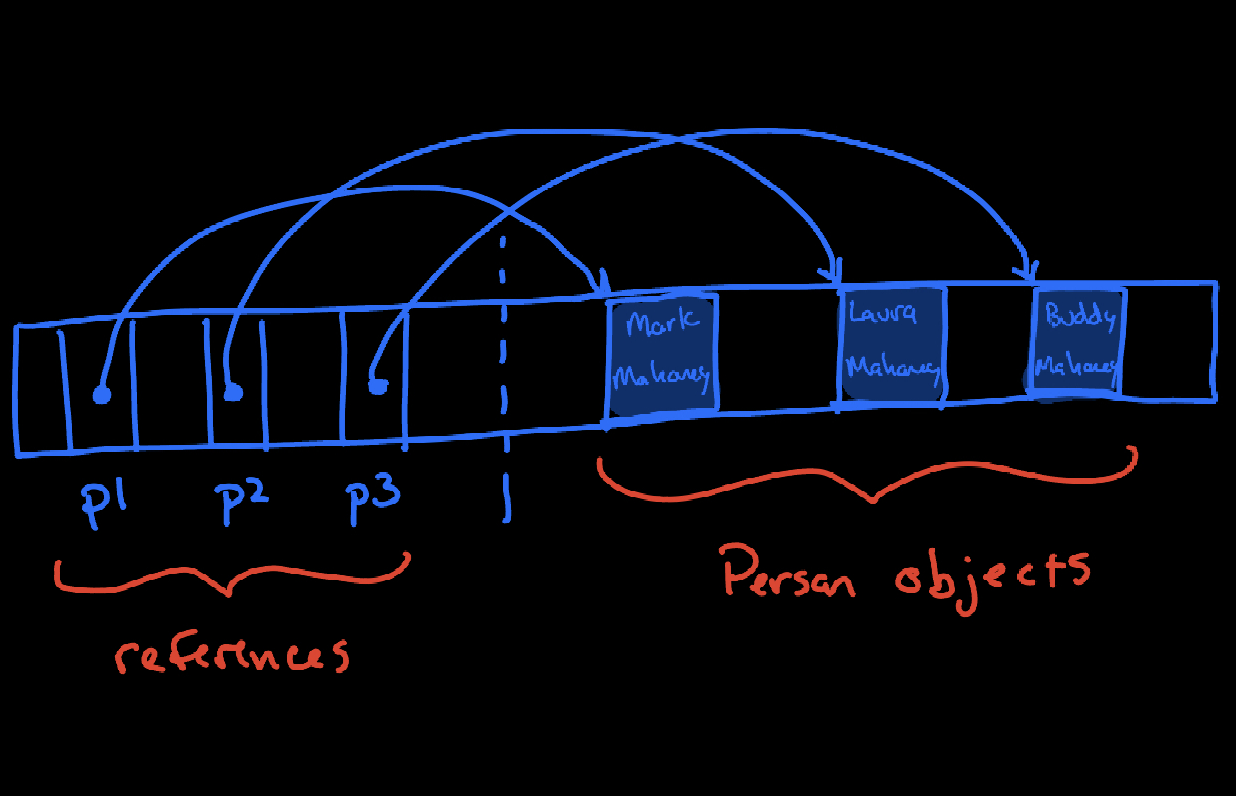 Mark
Mahoney
Laura
Mahoney
Buddy
Mahoney
p1 p2 p3
references
Person objects